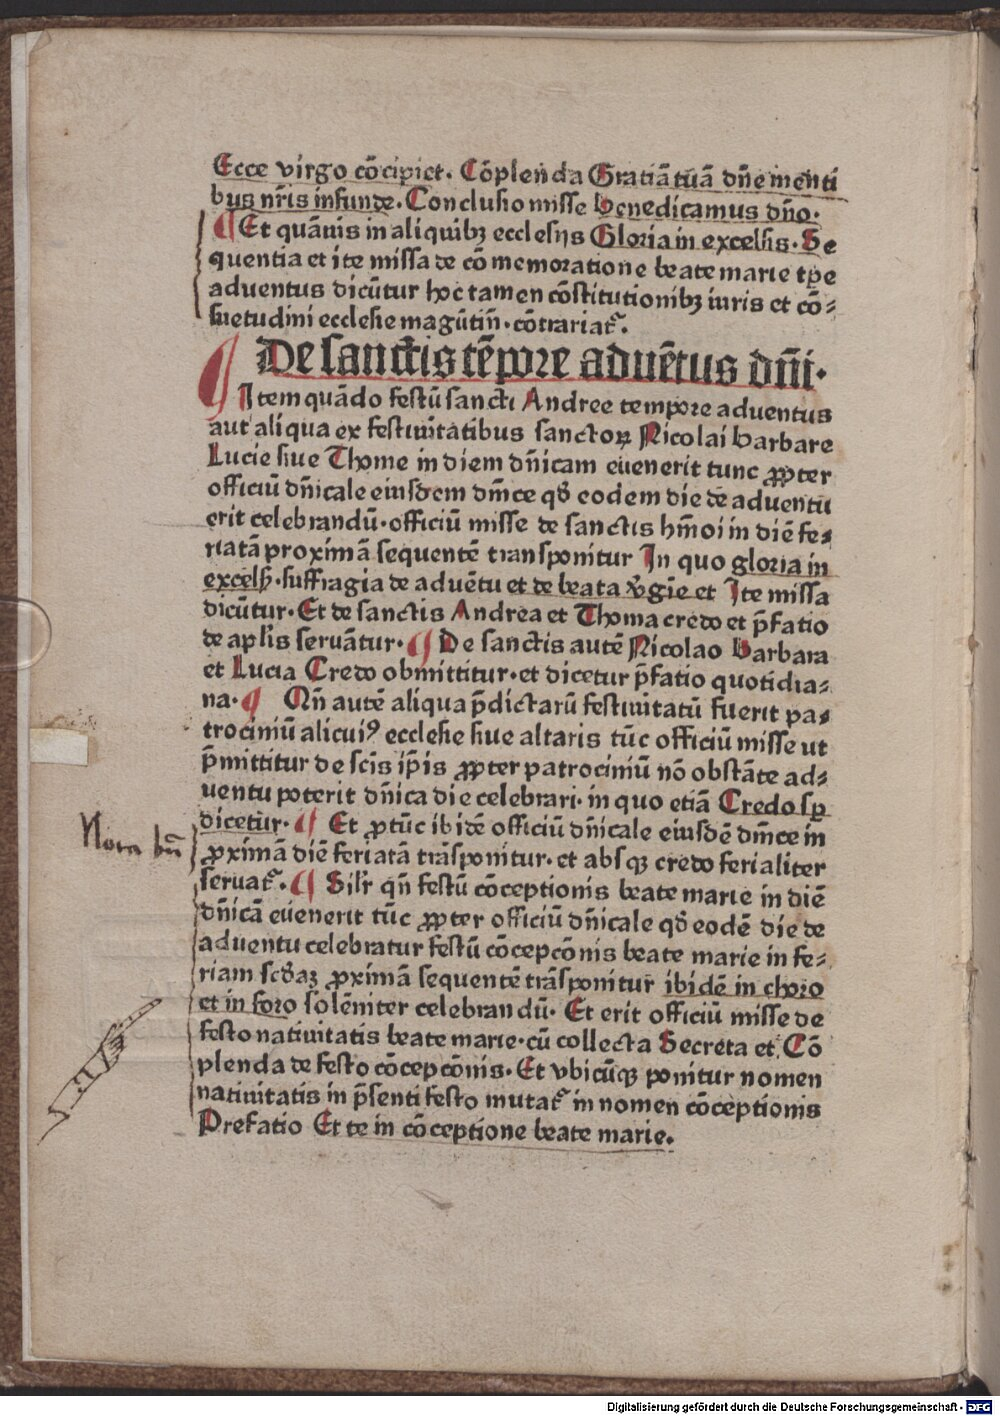 Ecce virgo cōcipiet. Cōplenda Gratiā tuā dn̄e menti
bus nr̄is infunde. Conclusio misse Benedicamus dn̄o.
¶ Et quāuis in aliquibꝫ ecclesijs Gloria in excelsis. Se
quentia et ite missa de cōmemoratione beate marie tp̄e
aduentus dicūtur hoc tamen cōstitutionibꝫ iuris et cō⸗
suetudini ecclesie magūtin̄. cōtrariat᷑.
¶ De sanctis tēpore aduētus dn̄i.
Item quādo festū sancti Andree tempore aduentus
aut aliqua ex festiuitatibus sanctoꝝ Nicolai Barbare
Lucie siue Thome in diem dn̄icam euenerit tunc ꝓpter
officiū dn̄icale eiusdem dn̄ice qd̄ eodem die de aduentu
erit celebrandū. officiū misse de sanctis hmōi in diē fe⸗
riatā proximā sequentē transponitur In quo gloria in
excelsꝭ. suffragia de aduētu et de beata v̄gīe et Ite missa
dicūtur. Et de sanctis Andrea et Thoma credo et p̄fatio
de aplīs seruātur. ¶ De sanctis autē Nicolao Barbara
et Lucia Credo obmittitur. et dicetur p̄fatio quotidia⸗
na. ¶ Qn̄ autē aliqua p̄dictarū festiuitatū fuerit pa⸗
trociniū alicuiꝰ ecclesie siue altaris tūc officiū misse ut
p̄mittitur de scīs ip̄is ꝓpter patrociniū nō obstāte ad⸗
uentu poterit dn̄ica die celebrari. in quo etiā Credo sꝑ
dicetur. ¶ Et ꝓtūc ibidē officiū dn̄icale eiusdē dn̄ice in
ꝓximā diē feriatā trāsponitur. et absqꝫ credo ferialiter
seruat᷑. ¶ Silr̄ qn̄ festū cōceptionis beate marie in diē
dn̄icā euenerit tūc ꝓpter officiū dn̄icale qd̄ eodē die de
aduentu celebratur festū cōcepcōnis beate marie in fe⸗
riam scd̄aꝫ ꝓximā sequentē trāsponitur ibidē in choro
et in foro solēniter celebrandū. Et erit officiū misse de
festo natiuitatis beate marie. cū collecta Secreta et Cō
plenda de festo cōcepcōnis. Et vbicūqꝫ ponitur nomen
natiuitatis in p̄senti festo mutat᷑ in nomen cōceptionis
Prefatio Et te in cōceptione beate marie.
Nota bn̄
Digitalisierung gefördert durch die Deutsche Forschungsgemeinschaft - DFG